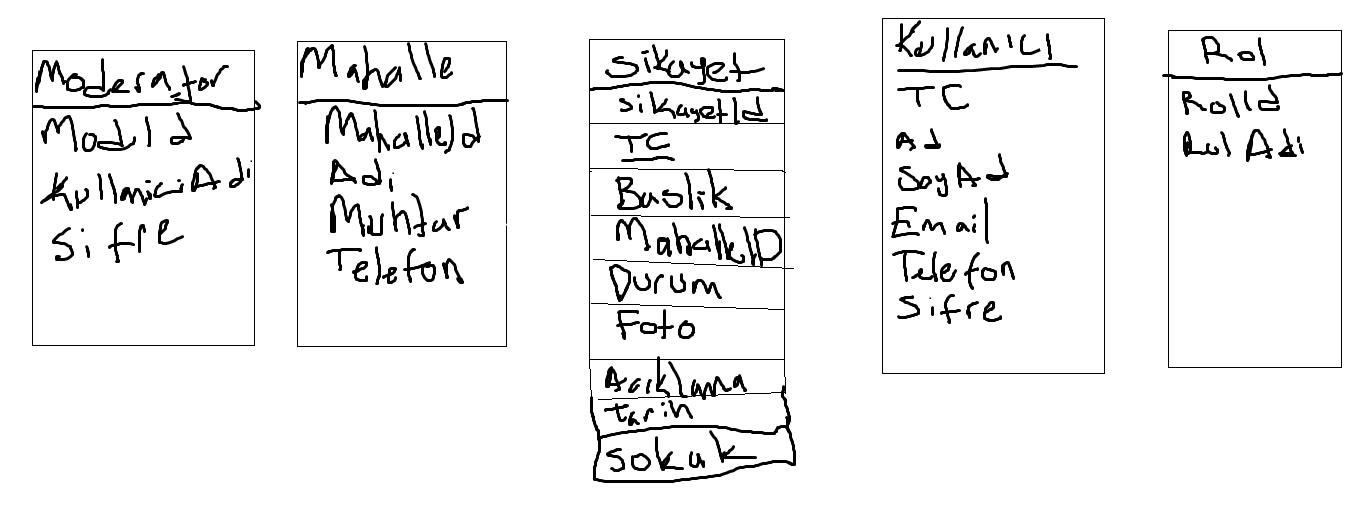 Moderator
ModId
KullaniciAdi
Sifre
Mahalle
MahalleId
Adi
Muhtar
Telefon
Sikayet
SikayetId
TC
Baslik
MahalleID
Durum
Foto
Aciklama
tarih
Sokak
Kullanici
TC
Ad
SoyAd
Email
Telefon
Sifre
Rol
RolId
Rol Adi